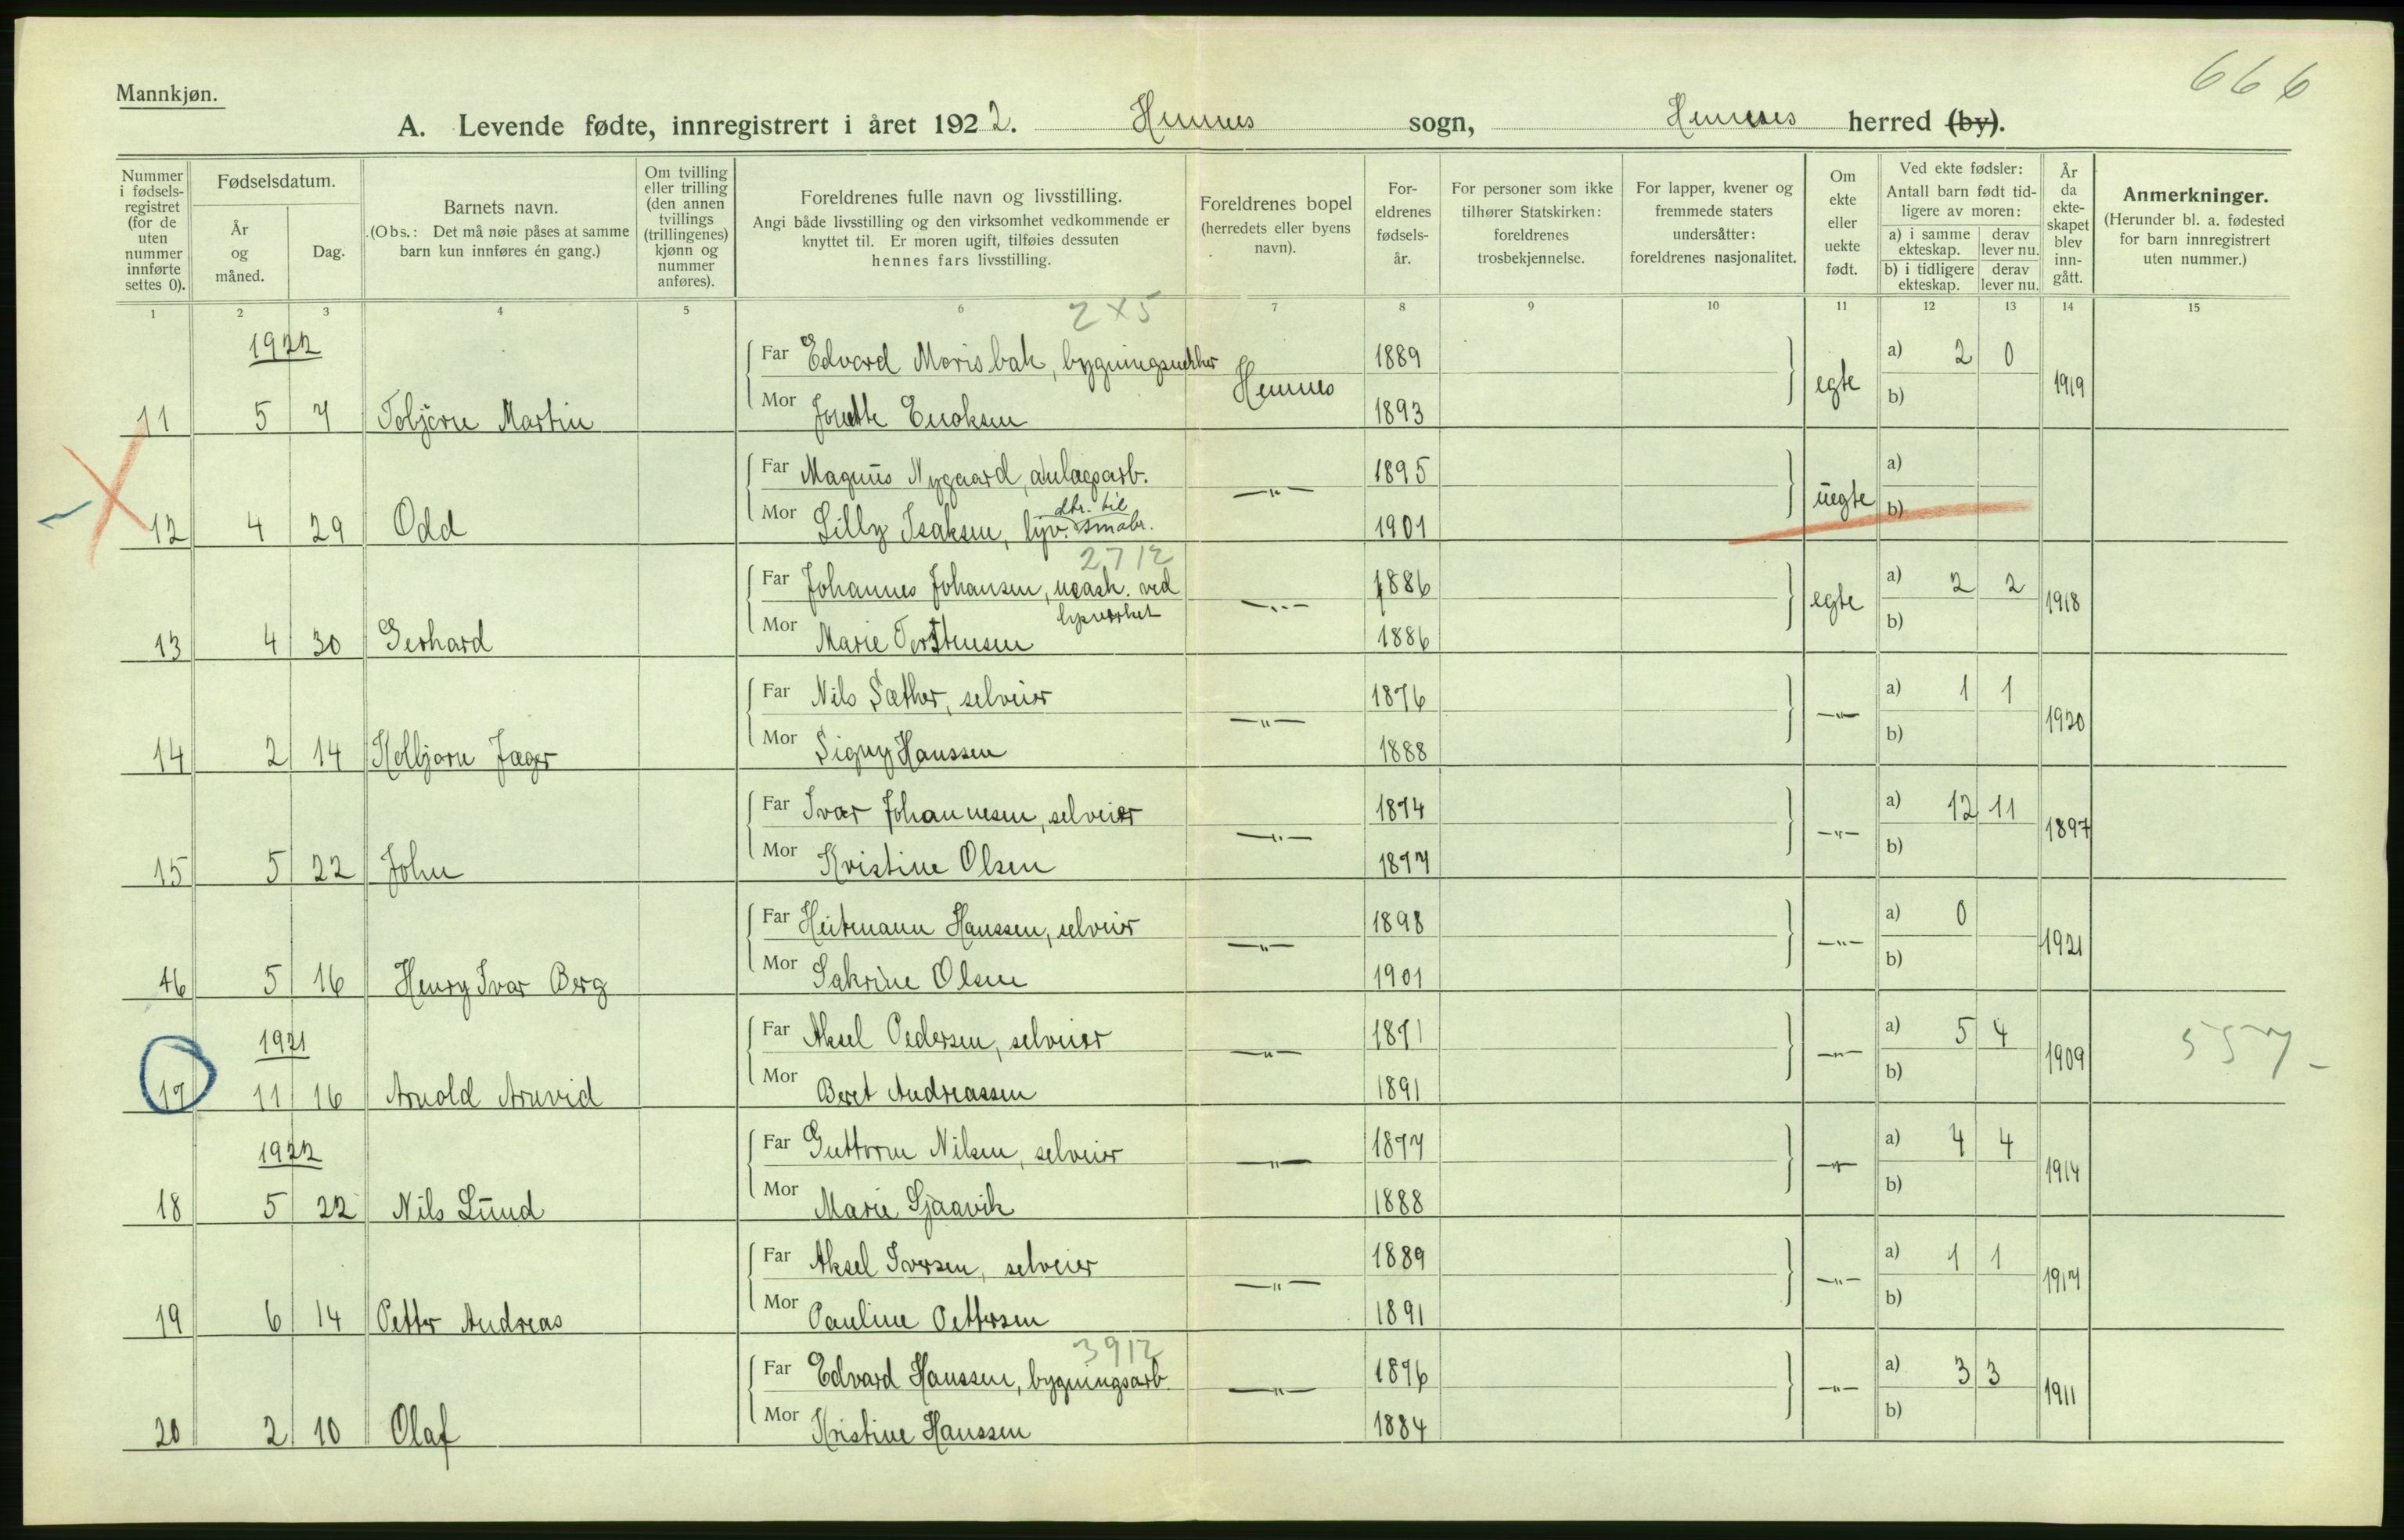 666
Mannkjøn.
A. Levende fødte, innregistrert i året 1922. Hemnes sogn, Hemnes herred (by).
Nummer i fødsels-registret (for de uten nummer innførte settes 0).
Fødselsdatum.
År og måned.
Dag.
Barnets navn.
(Obs.: Det må nøie påses at samme barn kun innføres én gang.)
Om tvilling eller trilling (den annen tvillings (trillingenes) kjønn og nummer anføres).
Foreldrenes fulle navn og livsstilling.
Angi både livsstilling og den virksomhet vedkommende er knyttet til. Er moren ugift, tilføies dessuten hennes fars livsstilling.
Foreldrenes bopel (herredets eller byens navn).
For-eldrenes fødsels-år.
For personer som ikke tilhører Statskirken: foreldrenes trosbekjennelse.
For lapper, kvener og fremmede staters undersåtter: foreldrenes nasjonalitet.
Om ekte eller uekte født.
Ved ekte fødsler:
Antall barn født tid-ligere av moren:
a) i samme ekteskap.
derav lever nu.
b) i tidligere ekteskap.
derav lever nu.
År da ekte-skapet blev inn-gått.
Anmerkninger.
(Herunder bl. a. fødested for barn innregistrert uten nummer.)
1 2 3 4 5 6 7 8 9 10 11 12 13 14 15
2 x 5
1922
Far Edvard Morisbak, 1889 a) 2 0
11 5 7 Tobjørn Martin Mor Enoksen Hemnes 1893 egte b) 1919
Far Magnus Nygaard, anlægsarb. 1895 a)
dtr. til
12 4 29 Odd Mor Lilly Isaksen, smabr. —"— 1901 uegte b)
2712
Far Johannes Johansen, ved 1886 a) 2 2
13 4 30 Gerhard Mor Marie Torstensen —"— 1886 egte b) 1918
Far Nils Sæther, selveier 1876 a) 1 1
14 2 14 Kolbjørn Jæger Mor Signy Hanssen —"— 1888 —"— b) 1920
Far Ivar Johannesen, selveier 1874 a) 12 11
15 5 22 John Mor Kristine Olsen —"— 1877 —"— b) 1897
Far Heitmann Hanssen, selveier 1898 a) 0
16 5 16 Henry Ivar Berg Mor Sakrine Olsen —"— 1901 —"— b) 1921
1921
Far Aksel Pedersen, selveier 1871 a) 5 4
17 11 16 Arnold Arnvid Mor Beret Andreassen —"— 1891 —"— b) 1909 557 –
1922
Far Guttorm Nilsen, selveier 1877 a) 4 4
18 5 22 Nils Lund Mor Marie Sjaavik —"— 1888 —"— b) 1914
Far Aksel Iversen, selveier 1889 a) 1 1
19 6 14 Petter Andreas Mor Pauline Pettersen —"— 1891 —"— b) 1917
3912
Far Edvard Hanssen, bygningsarb. 1876 a) 3 3
20 2 10 Olaf Mor Kristine Hanssen —"— 1884 —"— b) 1911